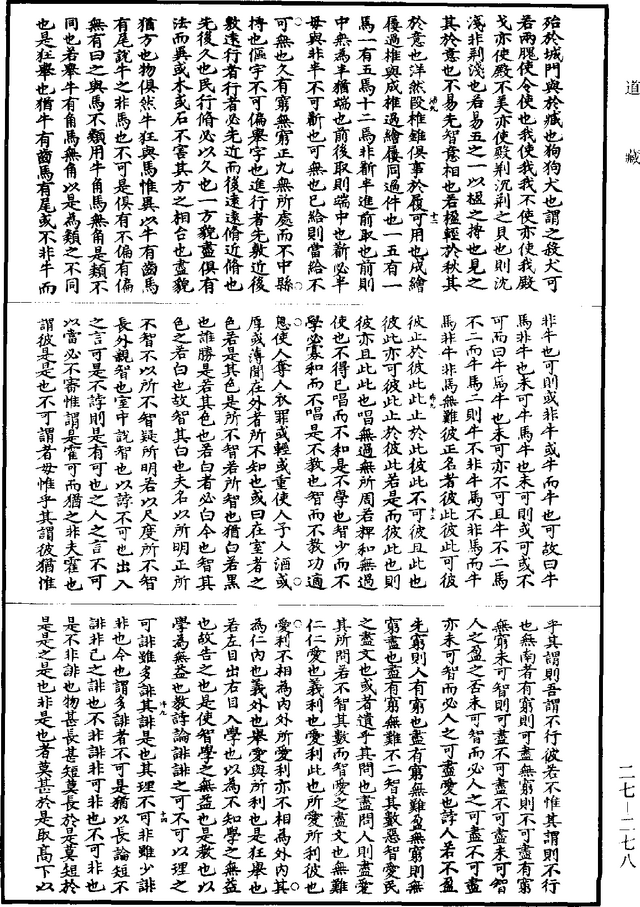 道藏
殆於城門與於臧也狗狗犬也謂之殺犬可
若兩䏶使令使也我使我我不使亦使我殿
戈亦使殿不美亦使殿荆沉荆之貝也則沈
淺非荆淺也若易五之一以楹之摶也見之
其於意也不易先智意相也若楹輕於秋其
於意也洋然段椎錐俱事於履可用也成繪
屨過椎與成椎過繪屨同過件也一五有一
馬一有五馬十二馬非斱半進前取也前則
中無為半猶端也前後取則端中也斱必半
毋與非半不可斱也可無也已給則當給不
可無也久有窮無窮正九無所處而不中縣
摶也傴宇不可偏舉宇也進行者先敷近後
敷遠行者行者必先近而後遠遠脩近脩也
先後久也民行脩必以久也一方貌盡俱有
法而異或木或石不害其方之相台也盡貌
猶方也物俱然牛狂與馬惟異以牛有齒馬
有尾說牛之非馬也不可是俱有不偏有偏
無有曰之與馬不類用牛角馬無角是類不
同也若舉牛有角馬無角以是為類之不同
也是狂舉也猶牛有齒馬有尾或不非牛而
非牛也可則或非牛或牛而牛也可故曰牛
馬非牛也未可牛馬牛也未可則或可或不
可而曰牛馬牛也未可亦不可且牛不二馬
不二而牛馬二則牛不非牛馬不非馬而牛
馬非牛非馬無難彼正名者彼此彼此可彼
彼止於彼此此止於此彼此不可彼且此也
彼此亦可彼此止於彼此若是而彼此也則
彼亦且此此也唱無過無所周若粺和無過
使也不得已唱而不和是不學也智少而不
學必寡和而不唱是不教也智而不教功適
息使人奪人衣罪或輕或重使人予人酒或
厚或薄聞在外者所不知也或曰在室者之
色若是其色是所不智若所智也猶白若黑
也誰勝是若其色也若白者必白今也智其
色之若白也故智其白也夫名以所明正所
不智不以所不智疑所明若以尺度所不智
長外親智也室中說智也以誖不可也出入
之言可是不誖則是有可也之人之言不可
以當必不審惟謂是霍可而猶之非夫霍也
謂彼是是也不可謂者毋惟乎其謂彼猶惟
乎其謂則吾謂不行彼若不惟其謂則不行
也無南者有窮則可盡無窮則不可盡有窮
無窮未可智則可盡不可盡不可盡未可智
人之盈之否未可智而必人之可盡不可盡
亦未可智而必人之可盡愛也誖人若不盈
先窮則人有窮也盡有窮無難盈無窮則無
窮盡也盡有窮無難不二智其數惡智愛民
之盡文也或者遺乎其問也盡問人則盡愛
其所問若不智其數而智愛之盡文也無難
仁仁愛也義利也愛利此也所愛所利彼也
愛利不相為內外所愛利亦不相為外內其
為仁內也義外也舉愛與所利也是狂舉也
若左目出右目入學也以為不知學之無益
也故告之也是使智學之無益也是教也以
學為無益也教誖論誹誹之可不可以理之
可誹雖多誹其誹是也其理不可非雖少誹
非也今也謂多誹者不可是猶以長論短不
誹非己之誹也不非誹非可非也不可非也
是不非誹也物甚長甚短莫長於是莫短於
是是之是也非是也者莫甚於是取高下以
二七—二七八